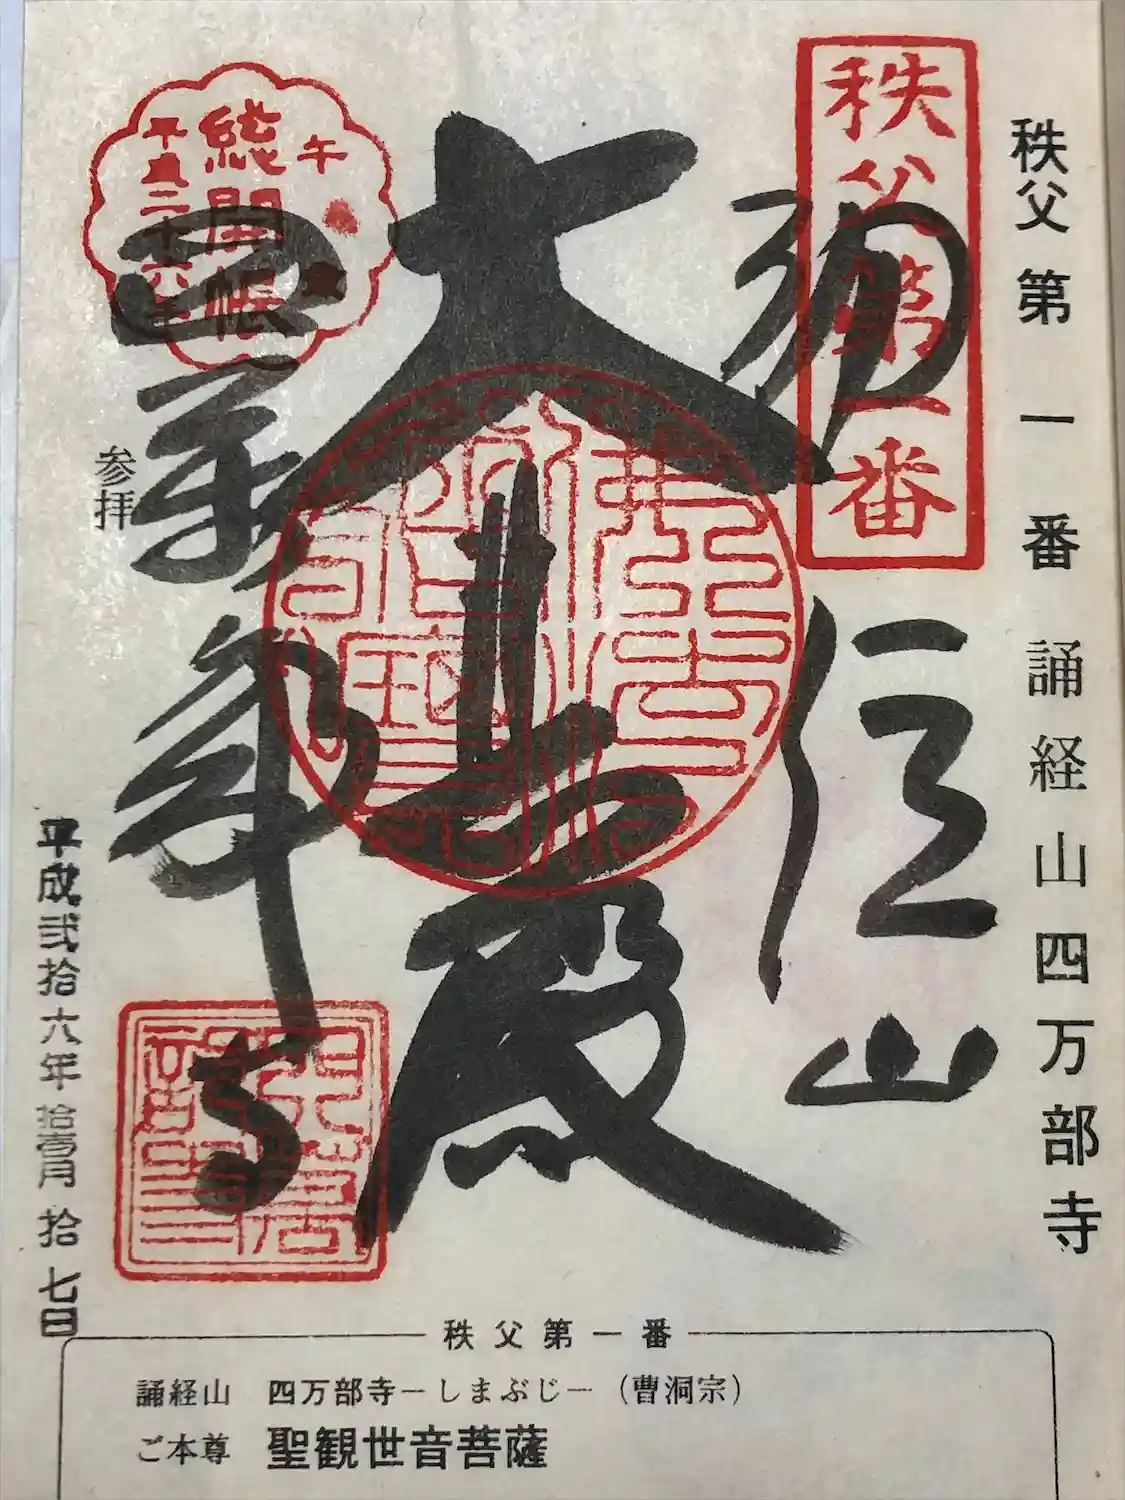 秩父第一番誦経山四万部寺
秩父第一番
経山
大悲殿
四萬部寺
午
総開帳
平成二十六年
参拝
平成弐拾六年拾壱月拾七日
秩父第一番
誦経山 四万部寺－しまぶじ－（曹洞宗）
ご本尊 聖観世音菩薩